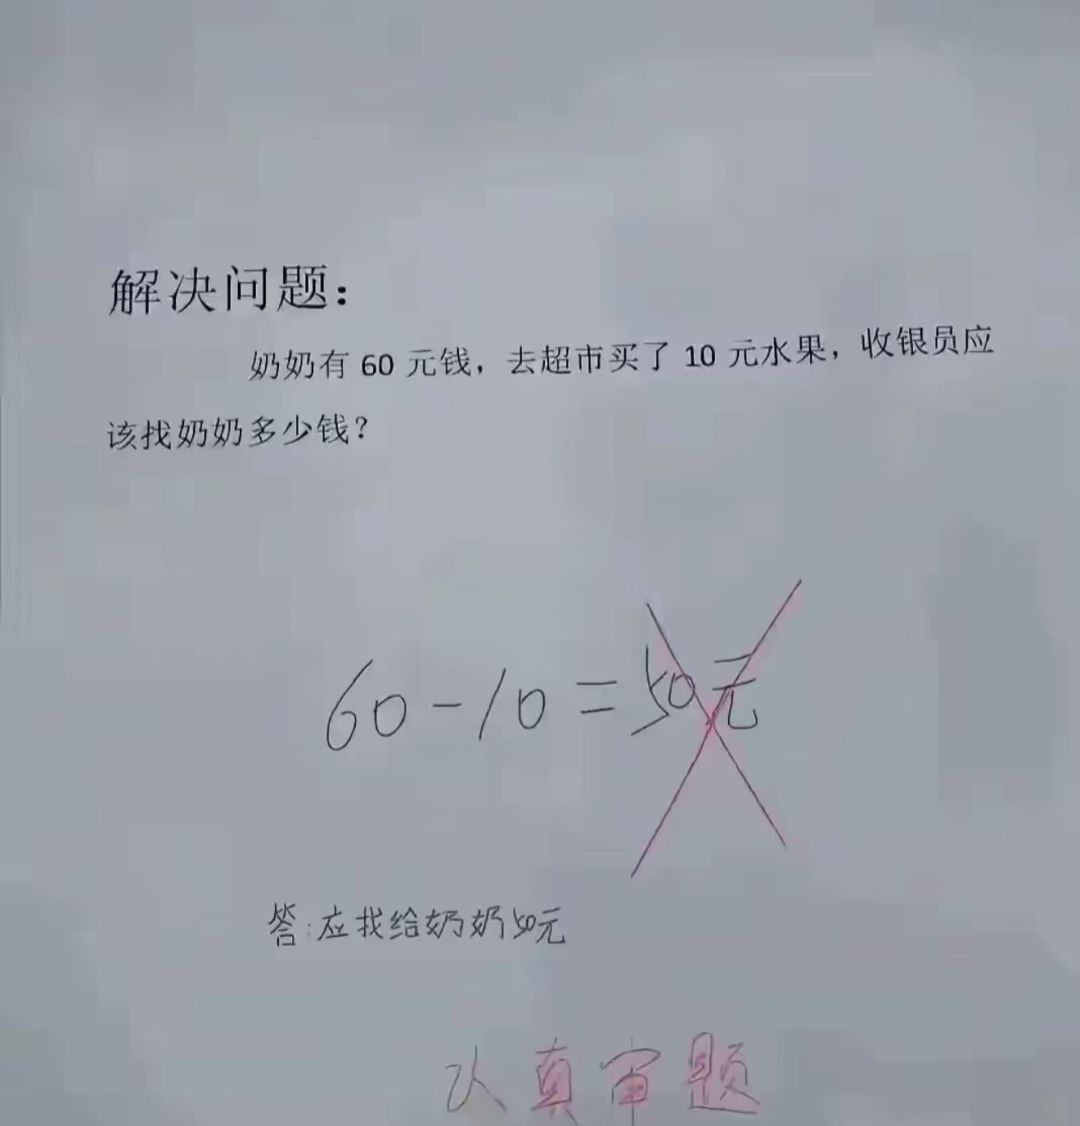 解决问题：
奶奶有 60 元钱，去超市买了 10 元水果，收银员应
该找奶奶多少钱？
60-10=50元
答:应找给奶奶50元
认真审题